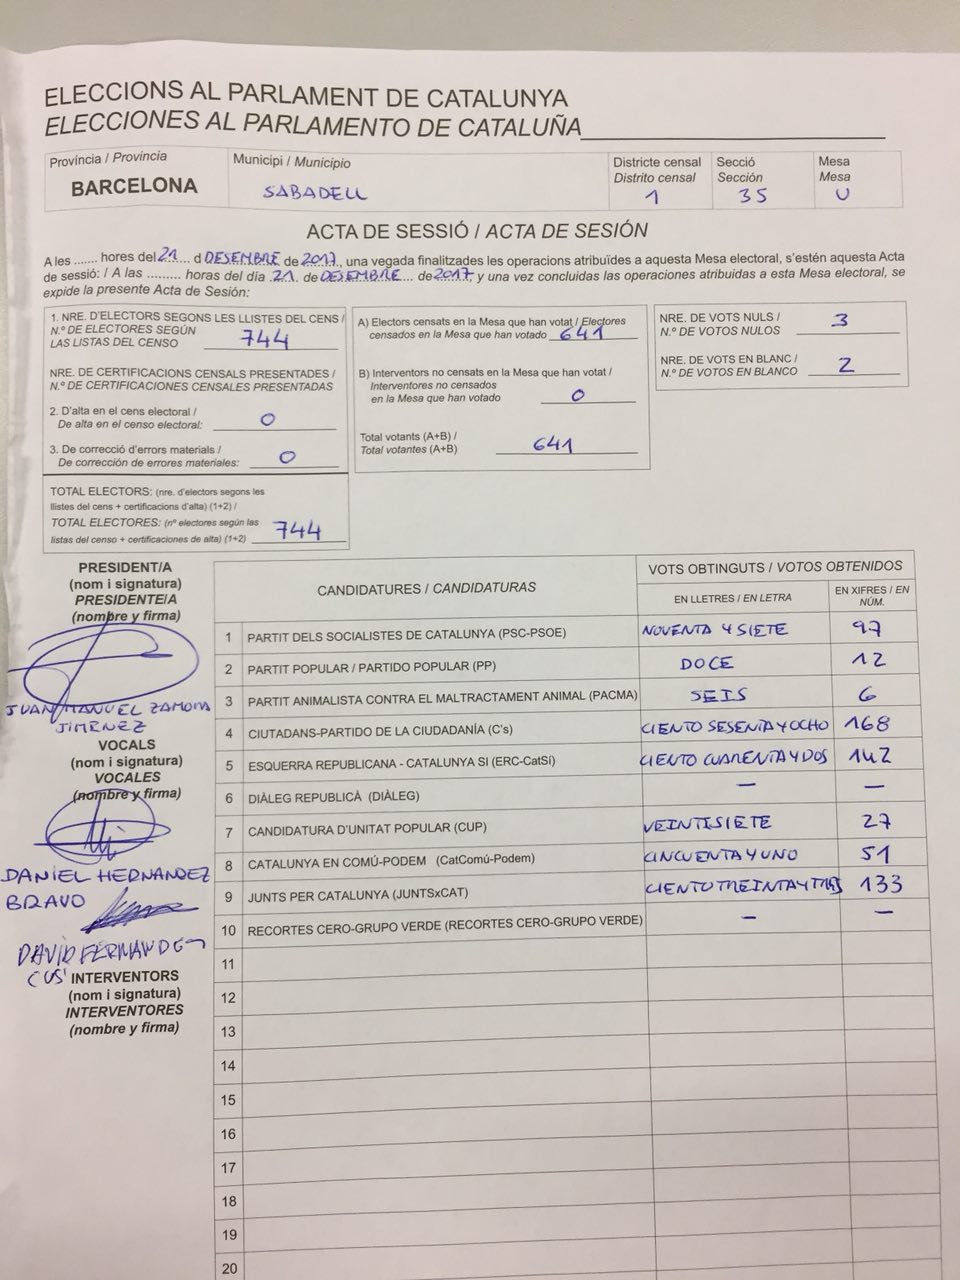 ELECCIONS AL PARLAMENT DE CATALUNYA
ELECCIONES AL PARLAMENTO DE CATALUÑA
Província / Provincia
BARCELONA
Municipi / Municipio
SABADELL
Districte censal
Distrito censal
1
Secció
Sección
35
Mesa
Mesa
U
ACTA DE SESSIÓ / ACTA DE SESIÓN
A les ....... hores del 21 d DESEMBRE de 2017, una vegada finalitzades les operacions atribuïdes a aquesta Mesa electoral, s'estén aquesta Acta
de sessió: / A las ......... horas del día 21 de DESEMBRE de 2017 y una vez concluidas las operaciones atribuidas a esta Mesa electoral, se
expide la presente Acta de Sesión:
1. NRE. D'ELECTORS SEGONS LES LLISTES DEL CENS /
N.º DE ELECTORES SEGÚN
LAS LISTAS DEL CENSO 744
NRE. DE CERTIFICACIONS CENSALS PRESENTADES /
N.º DE CERTIFICACIONES CENSALES PRESENTADAS
2. D'alta en el cens electoral /
De alta en el censo electoral: 0
3. De correcció d'errors materials /
De corrección de errores materiales: 0
TOTAL ELECTORS: (nre. d'electors segons les
llistes del cens + certificacions d'alta) (1+2) /
TOTAL ELECTORES: (nº electores según las
listas del censo + certificaciones de alta) (1+2) 744
A) Electors censats en la Mesa que han votat / Electores
censados en la Mesa que han votado 641
B) Interventors no censats en la Mesa que han votat /
Interventores no censados
en la Mesa que han votado 0
Total votants (A+B) /
Total votantes (A+B) 641
NRE. DE VOTS NULS /
N.º DE VOTOS NULOS 3
NRE. DE VOTS EN BLANC /
N.º DE VOTOS EN BLANCO 2
PRESIDENT/A
(nom i signatura)
PRESIDENTE/A
(nombre y firma)
JUAN MANUEL ZAMORA
JIMÉNEZ
VOCALS
(nom i signatura)
VOCALES
(nombre y firma)
DANIEL HERNÁNDEZ
BRAVO
DAVID FERNANDEZ
CUS
INTERVENTORS
(nom i signatura)
INTERVENTORES
(nombre y firma)
CANDIDATURES / CANDIDATURAS
VOTS OBTINGUTS / VOTOS OBTENIDOS
EN LLETRES / EN LETRA
EN XIFRES / EN
NÚM.
1 PARTIT DELS SOCIALISTES DE CATALUNYA (PSC-PSOE) NOVENTA Y SIETE 97
2 PARTIT POPULAR / PARTIDO POPULAR (PP) DOCE 12
3 PARTIT ANIMALISTA CONTRA EL MALTRACTAMENT ANIMAL (PACMA) SEIS 6
4 CIUTADANS-PARTIDO DE LA CIUDADANÍA (C's) CIENTO SESENTA Y OCHO 168
5 ESQUERRA REPUBLICANA - CATALUNYA SI (ERC-CatSí) CIENTO CUARENTA Y DOS 142
6 DIÀLEG REPUBLICÀ (DIÀLEG) — —
7 CANDIDATURA D'UNITAT POPULAR (CUP) VEINTISIETE 27
8 CATALUNYA EN COMÚ-PODEM (CatComú-Podem) CINCUENTA Y UNO 51
9 JUNTS PER CATALUNYA (JUNTSxCAT) CIENTO TREINTA Y TRES 133
10 RECORTES CERO-GRUPO VERDE (RECORTES CERO-GRUPO VERDE) — —
11
12
13
14
15
16
17
18
19
20